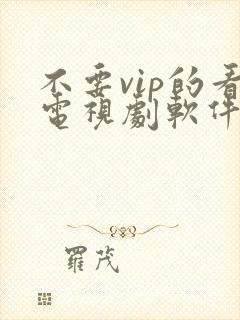 不要vip的看
電視劇軟件
羅茂